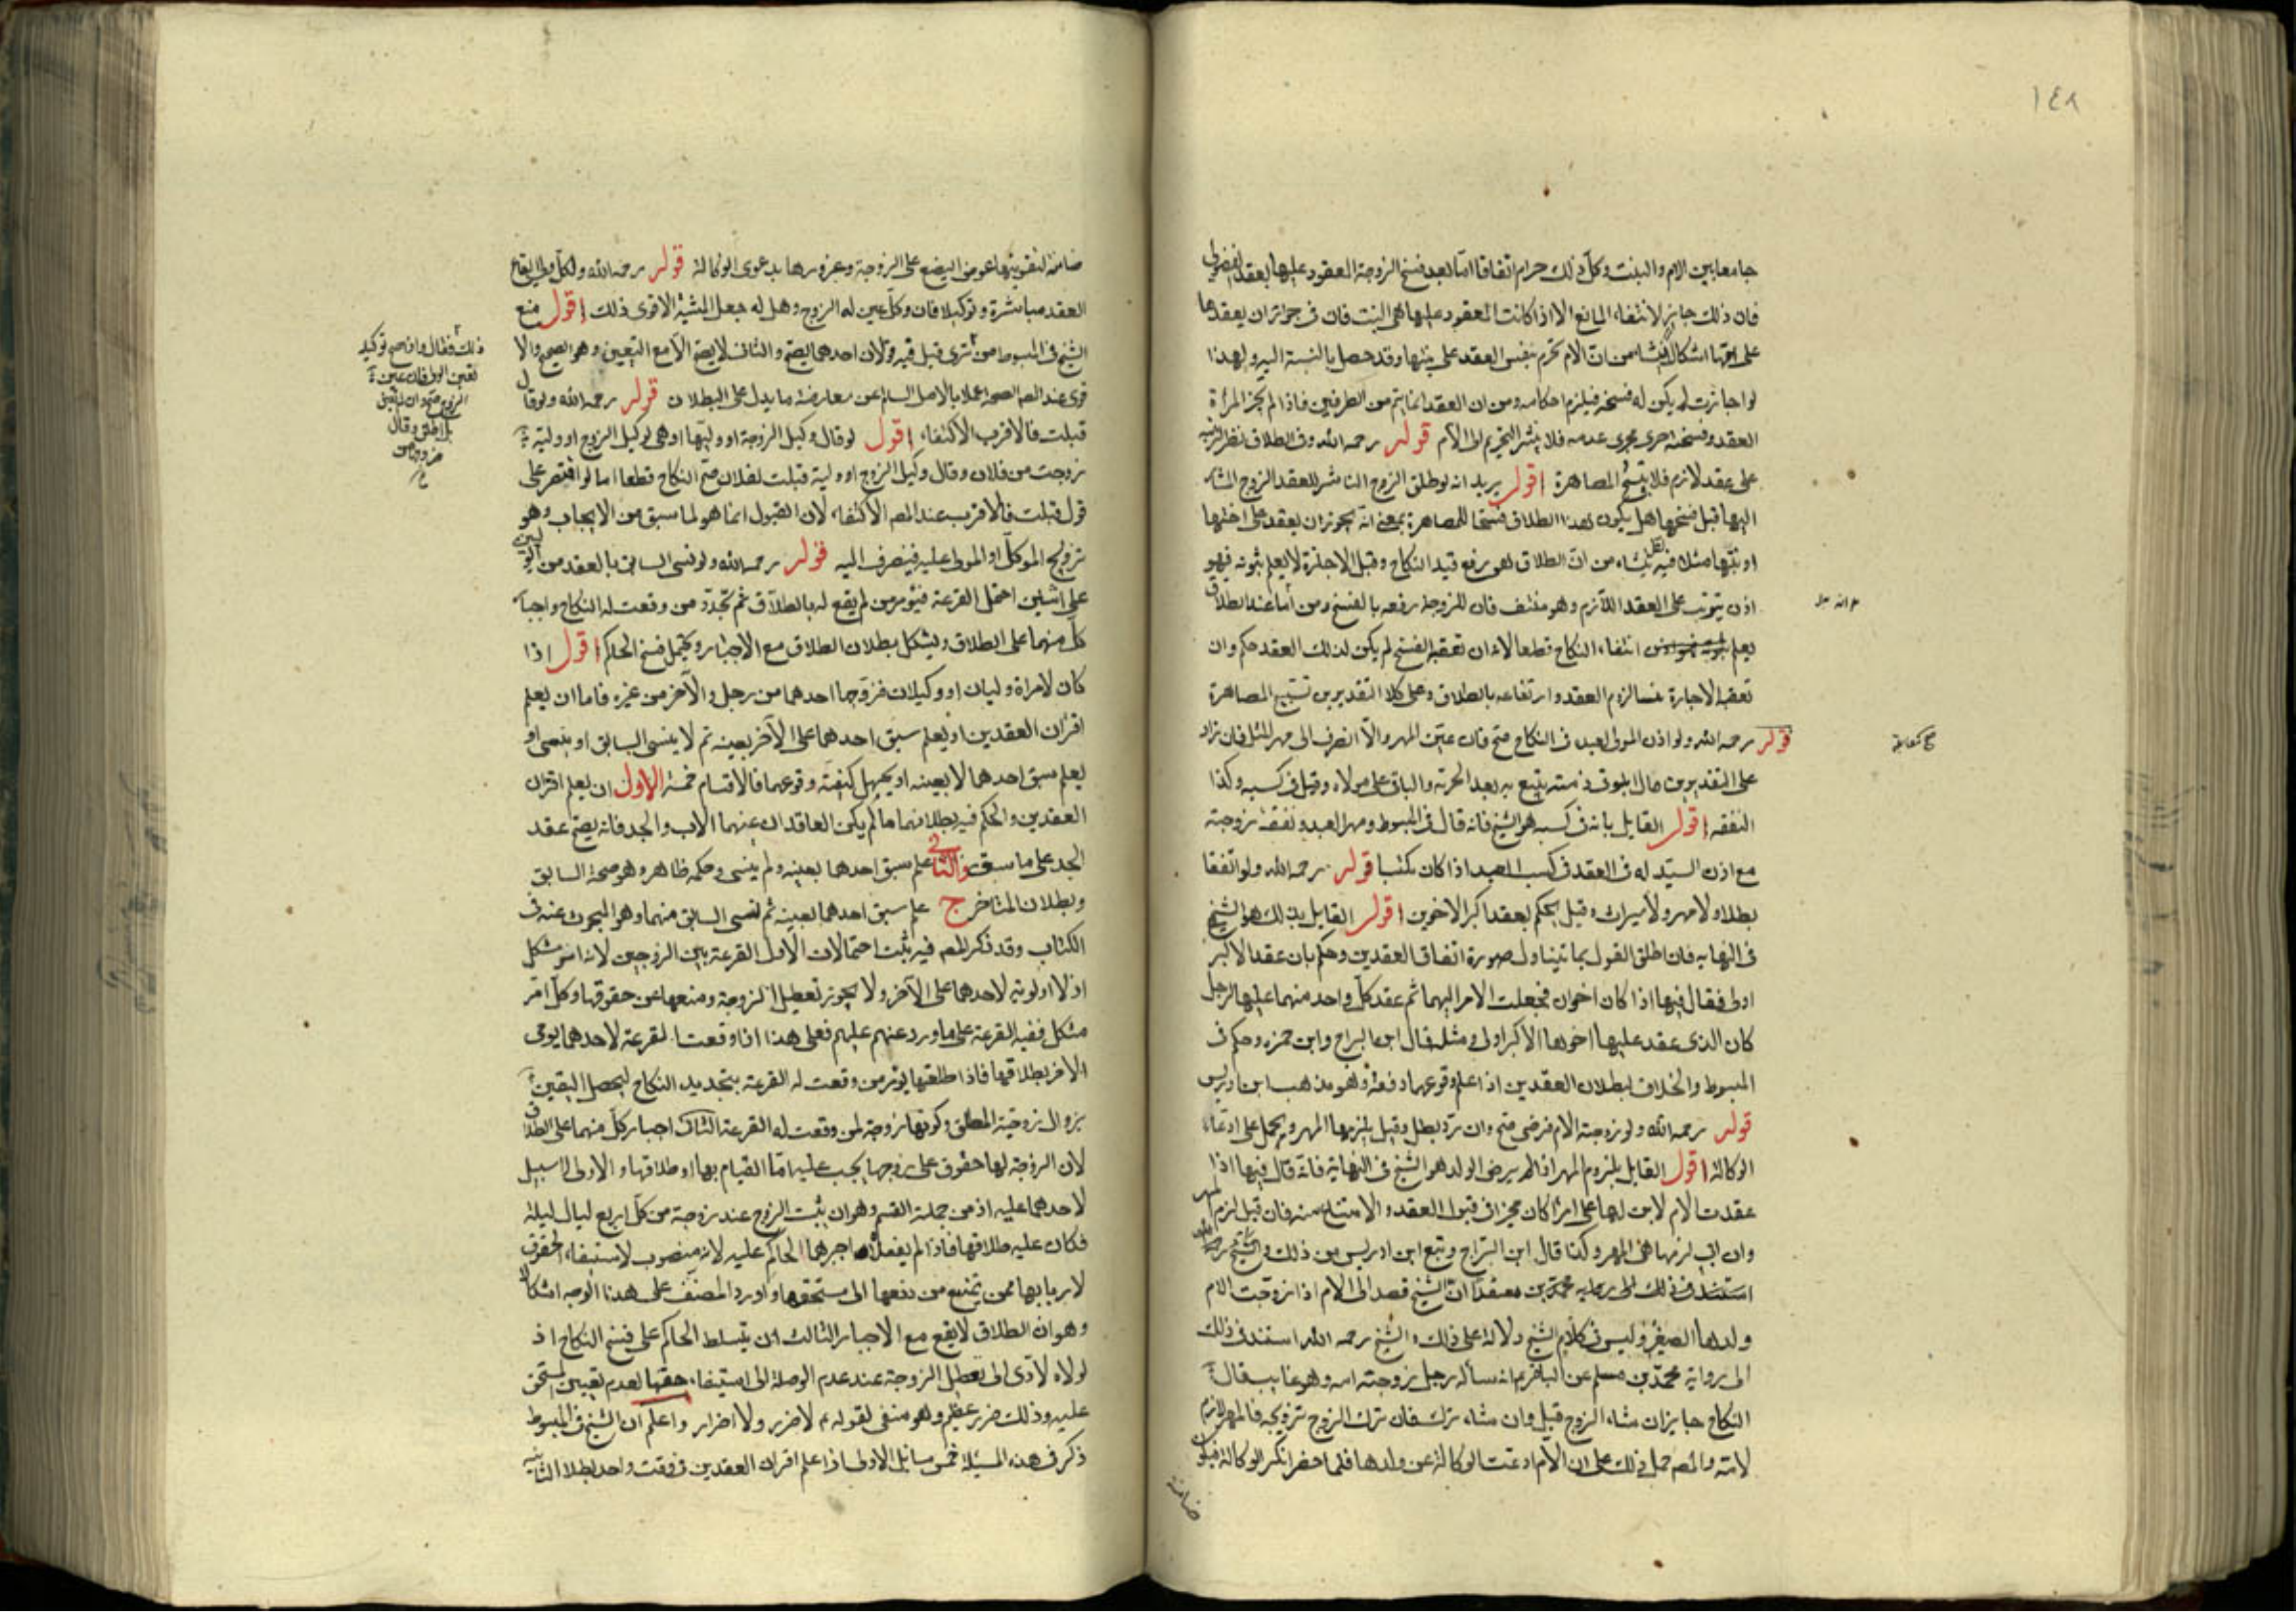 ١٤٨
جامعا بين الام والبنت وكل ذلك حرام اتفاقا اما بعد فسخ الزوجة المعقود عليها بعقد الفضولى
فان ذلك جايز لانتفاء المانع الا اذا كانت المعقود عليها هى البنت فان فى جواز ان يعقد
على امها اشكال ينشا من ان الام تحرم بنفس العقد على بنتها وقد حصل بالنسبة اليه ولهذا
لو اجازت لم يكن له فسخه فيلزم احكامه ومن ان العقد انما يتم من الطرفين فاذا لم يجز المراة
العقد وفسخته اجرى مجرى عدمه فلا ينشر التحريم الى الام قوله رحمه الله وفى الطلاق نظر لترتبه
على عقد لازم فلا يبيح المصاهرة اقول يريد انه لو طلق الزوج المباشر للعقد الزوج المشار
اليها قبل فسخها هل يكون هذا الطلاق مبيحا للمصاهرة بمعنى انه يجوز ان يعقد على اختها
او بنتها مثلا فيه نظر ينشاء من ان الطلاق هو رفع قيد النكاح وقبل الاجازة لا يعلم ثبوته فهو
اذن يترتب على العقد اللازم وهو منتف فان للزوجة رفعه بالفسخ ومن انا عند الطلاق
يعلم انتفاء النكاح قطعا لانه ان تعقبه الفسخ لم يكن لذلك العقد حكم وان
تعقبه الاجازة لزم العقد وارتفاعه بالطلاق وعلى كلا التقديرين تستبيح المصاهرة
قوله رحمه الله ولو اذن المولى لعبده فى النكاح صح فان عين المهر والا انصرف الى مهر المثل فان زاد
على التقديرين فالزايد فى ذمته يتبع به بعد الحرية والباقى على مولاه وقيل فى كسبه وكذا
النفقه اقول القايل بانه فى كسبه هو الشيخ فانه قال فى المبسوط ومهر العبد ونفقة زوجته
مع اذن السيد له فى العقد فى كسب العبد اذا كان مكتسبا قوله رحمه الله ولو اتفقا
بطلا ولا مهر ولا ميراث وقيل يحكم بعقد اكبر الاخوين اقول القايل بذلك هو الشيخ
فى النهايه فان اطلق القول بما يتناول صورة اتفاق العقدين وحكم بان عقد الاكبر
اولى فقال فيها اذا كان اخوان فجعلت الامر اليهما ثم عقد كل واحد منهما عليها لرجل
كان الذى عقد عليها اخوها الاكبر اولى ومثله قال ابن البراج وابن حمزه وحكم فى
المبسوط والخلاف ببطلان العقدين اذا علم وقوعهما دفعة وهو مذهب ابن ادريس
قوله رحمه الله ولو زوجته الام فرضى صح وان رد بطل وقيل يلزمها المهر ويحمل على ادعاء
الوكالة اقول القايل بلزوم المهر اذا لم يرض الولد هو الشيخ فى النهاية فانه قال فيها اذا
عقدت الام لابن لها على امراة كان مخيرا فى قبول العقد والامتناع منه فان قبل لزم المهر
وان ابى لزمها هى المهر وكذا قال ابن البراج ومنع ابن ادريس من ذلك
ولدها الصغير وليس فى كلام الشيخ دلالة على ذلك والشيخ رحمه الله استند فى ذلك
الى رواية محمد بن مسلم عن الباقر ع انه سأله رجل زوجته امه وهو غايب قال
النكاح جايز ان شاء الزوج قبل وان شاء ترك فان ترك الزوج تزويجه فالمهر لازم
لامه والمصـ حمل ذلك على ان الام ادعت الوكالة عن ولدها فلما حضر انكر الوكالة فيكون
ضامنة
ضامنة لتفويتها عوض البضع على الزوجة وغرورها بدعوى الوكالة قوله رحمه الله ولكل ولى ايقاع
العقد مباشرة وتوكيلا فان وكل عين له الزوج وهل له جعل المشية الاقوى ذلك اقول منع
الشيخ فى المبسوط من
قوى عند المصـ الصحة عملا بالاصل السالم عن معارضة ما يدل على البطلان قوله رحمه الله ولو قال
قبلت فالاقرب الاكتفاء اقول لو قال وكيل الزوجة او وليها او هى لوكيل الزوج او وليه
زوجت من فلان وقال وكيل الزوج او وليه قبلت لفلان صح النكاح قطعا اما لو اقتصر على
قول قبلت فالاقرب عند المصـ الاكتفاء لان القبول انما هو لما سبق من الايجاب وهو
تزويج الموكل او المولى عليه فينصرف اليه قوله رحمه الله ولو نسى السابق بالعقد من الوليين
على اثنين احتمل القرعة فيؤمر من لم يقع له بالطلاق ثم يجدد من وقعت له النكاح واجبار
كل منهما على الطلاق ويشكل ببطلان الطلاق مع الاجبار ويحتمل فسخ الحاكم اقول اذا
كان لامراة وليان او وكيلان فزوجها احدهما من رجل والآخر من غيره فاما ان يعلم
اقتران العقدين او يعلم سبق احدهما على الآخر بعينه ثم لا ينسى السابق او ينسى او
يعلم سبق احدهما لا بعينه او يجهل كيفية وقوعهما فالاقسام خمسة الاول ان يعلم اقتران
العقدين والحكم فيه بطلانهما ما لم يكن العاقدان عنهما الاب والجد فانه يصح عقد
الجد على ما سبق والثانى علم سبق احدهما بعينه ولم ينسى وحكمه ظاهر وهو صحة السابق
وبطلان المتاخر ج علم سبق احدهما بعينه ثم نسى السابق منهما وهو المبحوث عنه فى
الكتاب وقد ذكر المصـ فيه ثلث احتمالات الاول القرعة بين الزوجين لانه امر مشكل
اذ لا اولوية لاحدهما على الآخر ولا يجوز تعطيل الزوجة ومنعها عن حقوقها وكل امر
مشكل ففيه القرعة على ما ورد عنهم عليهم فعلى هذا اذا وقعت القرعة لاحدهما يومى
الاخر بطلاقها فاذا طلقها يومر من وقعت له القرعة بتجديد النكاح ليحصل اليقين
بزوال زوجية المطلق وكونها زوجة لمن وقعت له القرعة الثانى اجبار كل منهما على الطلاق
لان الزوجة لها حقوق على زوجها يجب عليه اما القيام بها او طلاقها والاولى لا سبيل
لاحدهما عليه اذ من جملة القسم وهو ان يبيت الزوج عند زوجة من كل اربع ليال ليلة
فكان عليه طلاقها فاذا لم يفعلا اجبرهما الحاكم عليه لانه منصوب لاستيفاء الحقوق
لاربابها ممن يمتنع من دفعها الى مستحقها واورد المصنف على هذا الوجه اشكالا
وهو ان الطلاق لا يقع مع الاجبار الثالث ان يتسلط الحاكم على فسخ النكاح اذ
لولاه لادى الى تعطل الزوجة عند عدم الوصلة الى استيفاء حقها لعدم تعيين المستحق
عليه وذلك ضرر عظيم وهو منفى لقوله ع لا ضرر ولا اضرار واعلم ان الشيخ فى المبسوط
ذكر فى هذه المسئلة خمس مسايل الاولى اذا علم اقتران العقدين فى وقت واحد بطلا الثانية